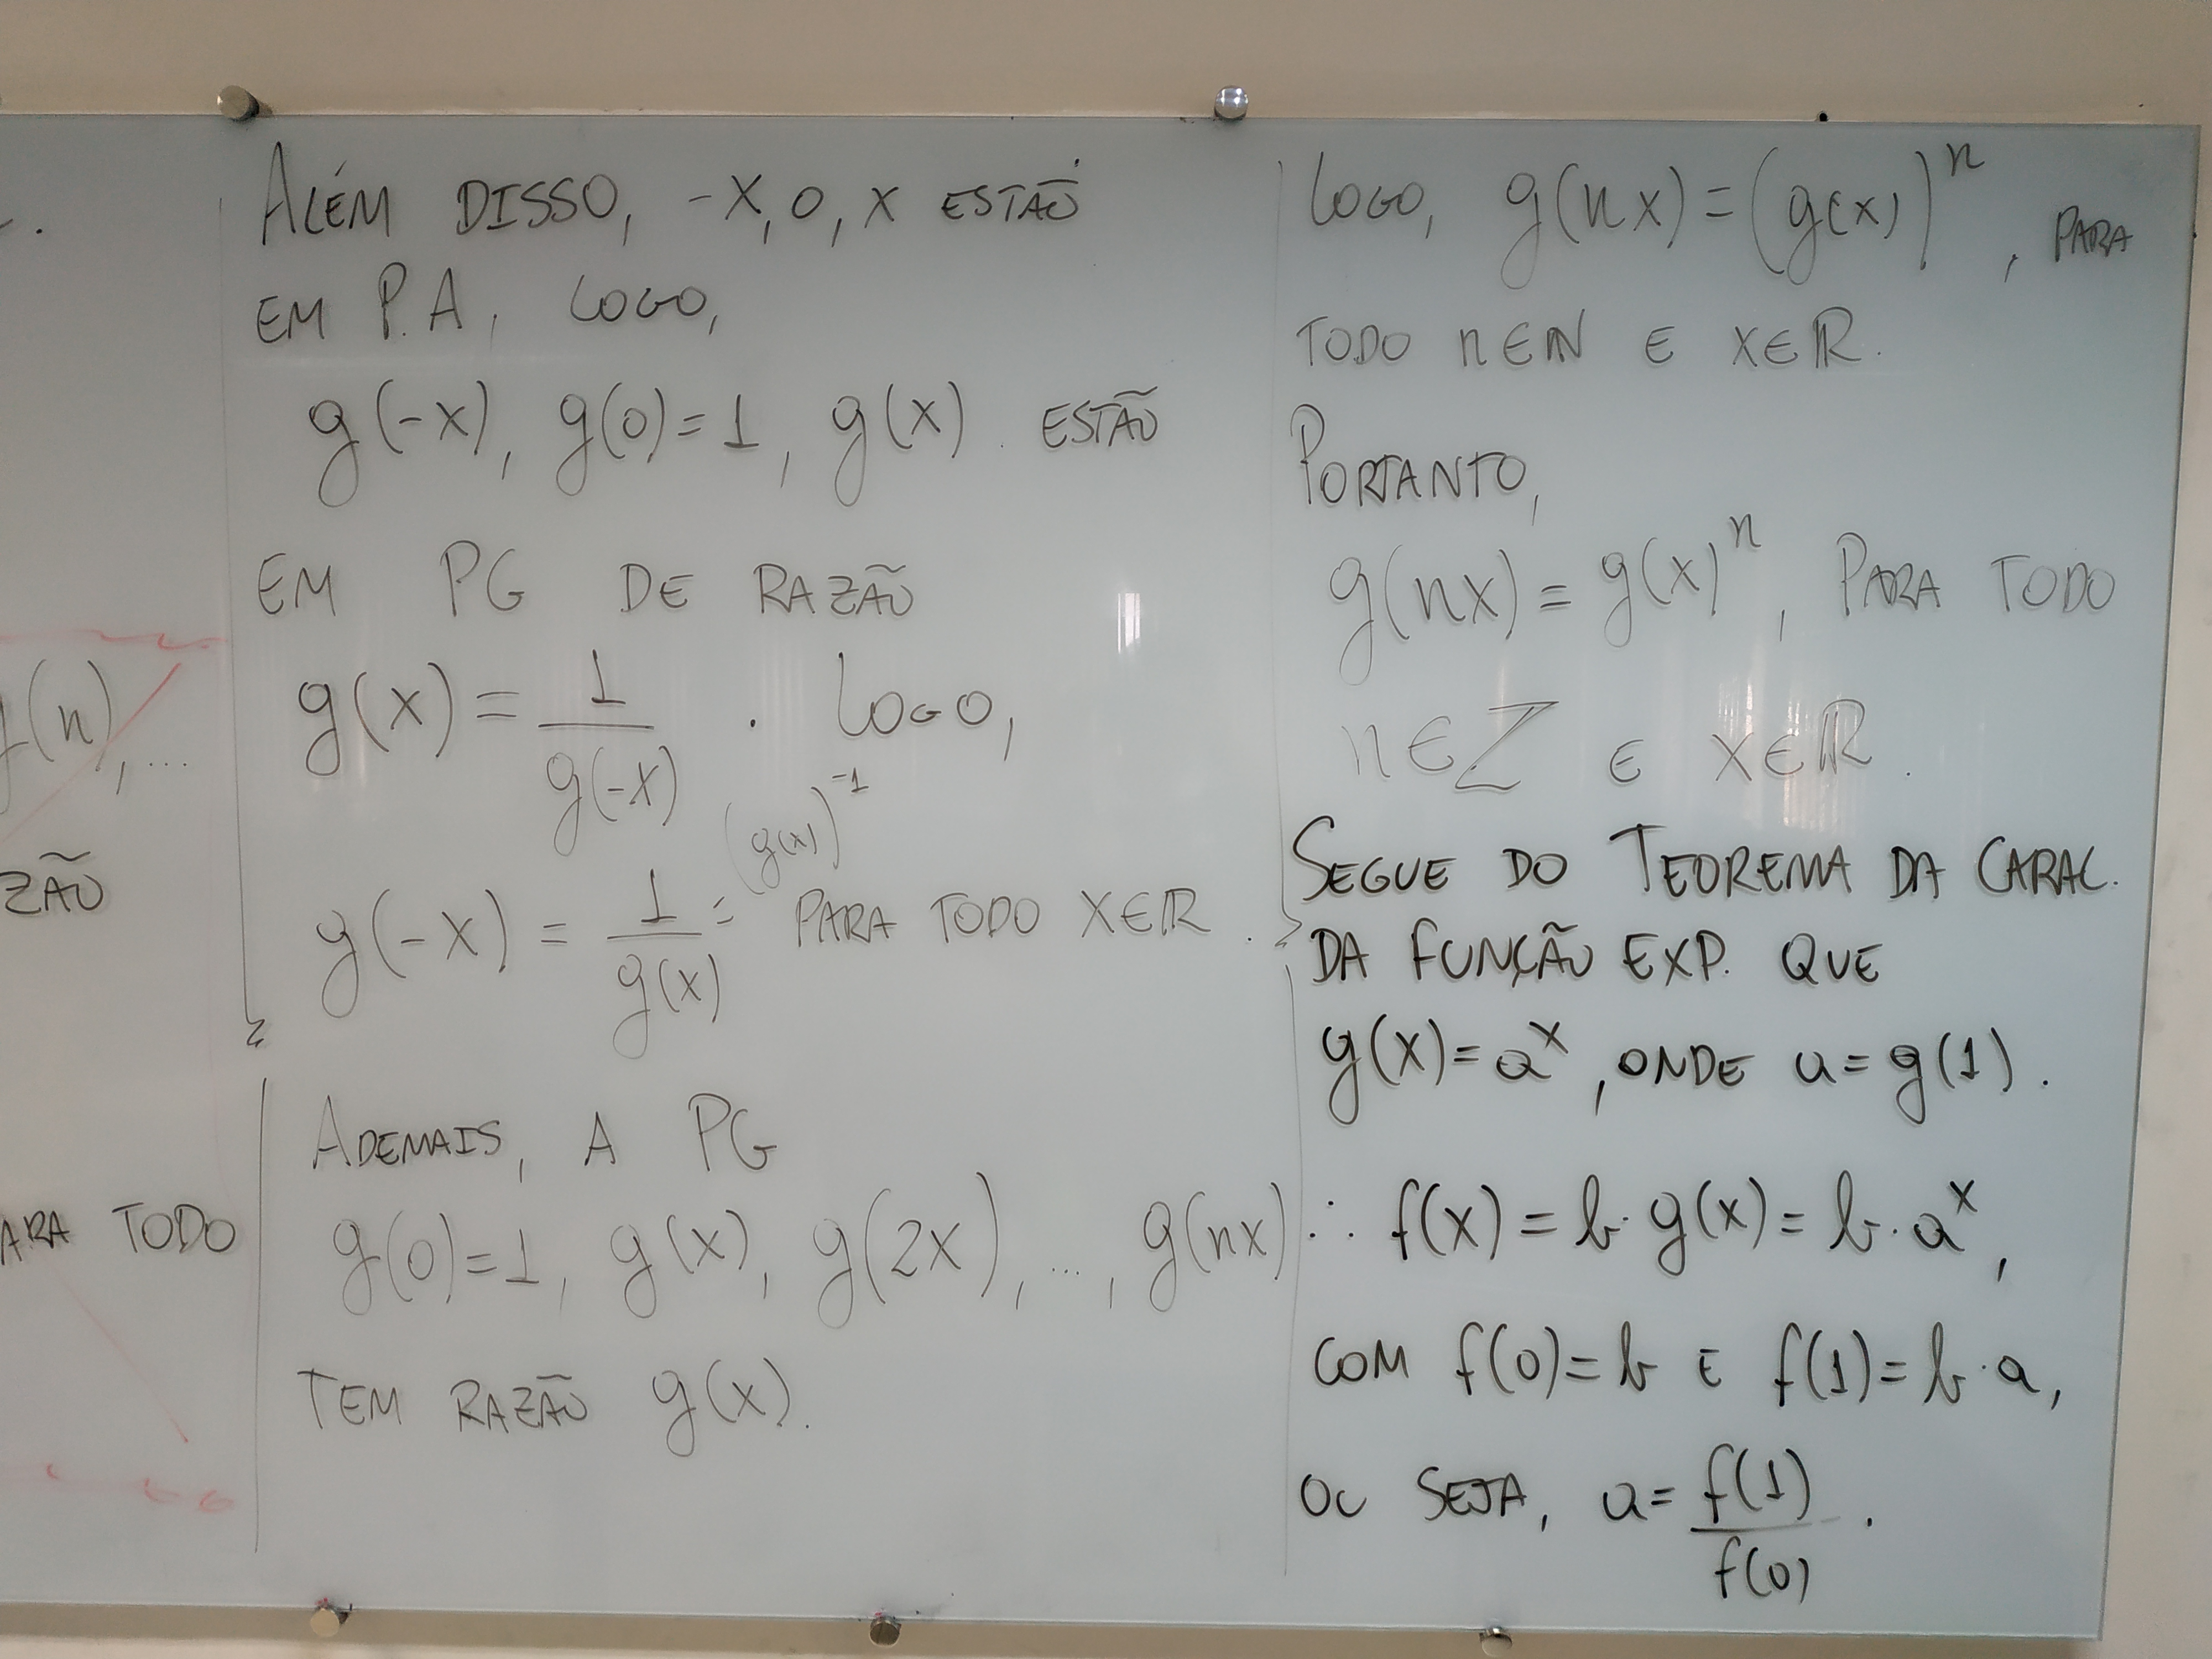 f(n), ...
ZÃO
ARA TODO
ALÉM DISSO, -X, 0, X ESTÃO
EM P.A, LOGO,
g(-x), g(0)=1, g(x). ESTÃO
EM PG DE RAZÃO
g(x) = 1/g(-x) . LOGO,
g(-x) = 1/g(x) = (g(x))^-1 PARA TODO X∈ℝ.
ADEMAIS, A PG
g(0)=1, g(x), g(2x), ..., g(nx)
TEM RAZÃO g(x).
LOGO, g(nx) = (g(x))^n, PARA
TODO n∈ℕ E X∈ℝ.
PORTANTO,
g(nx) = g(x)^n, PARA TODO
n∈ℤ E X∈ℝ.
SEGUE DO TEOREMA DA CARAC.
DA FUNÇÃO EXP. QUE
g(x) = a^x, ONDE a = g(1).
∴ f(x) = b·g(x) = b·a^x,
COM f(0) = b E f(1) = b·a,
OU SEJA, a = f(1)/f(0).